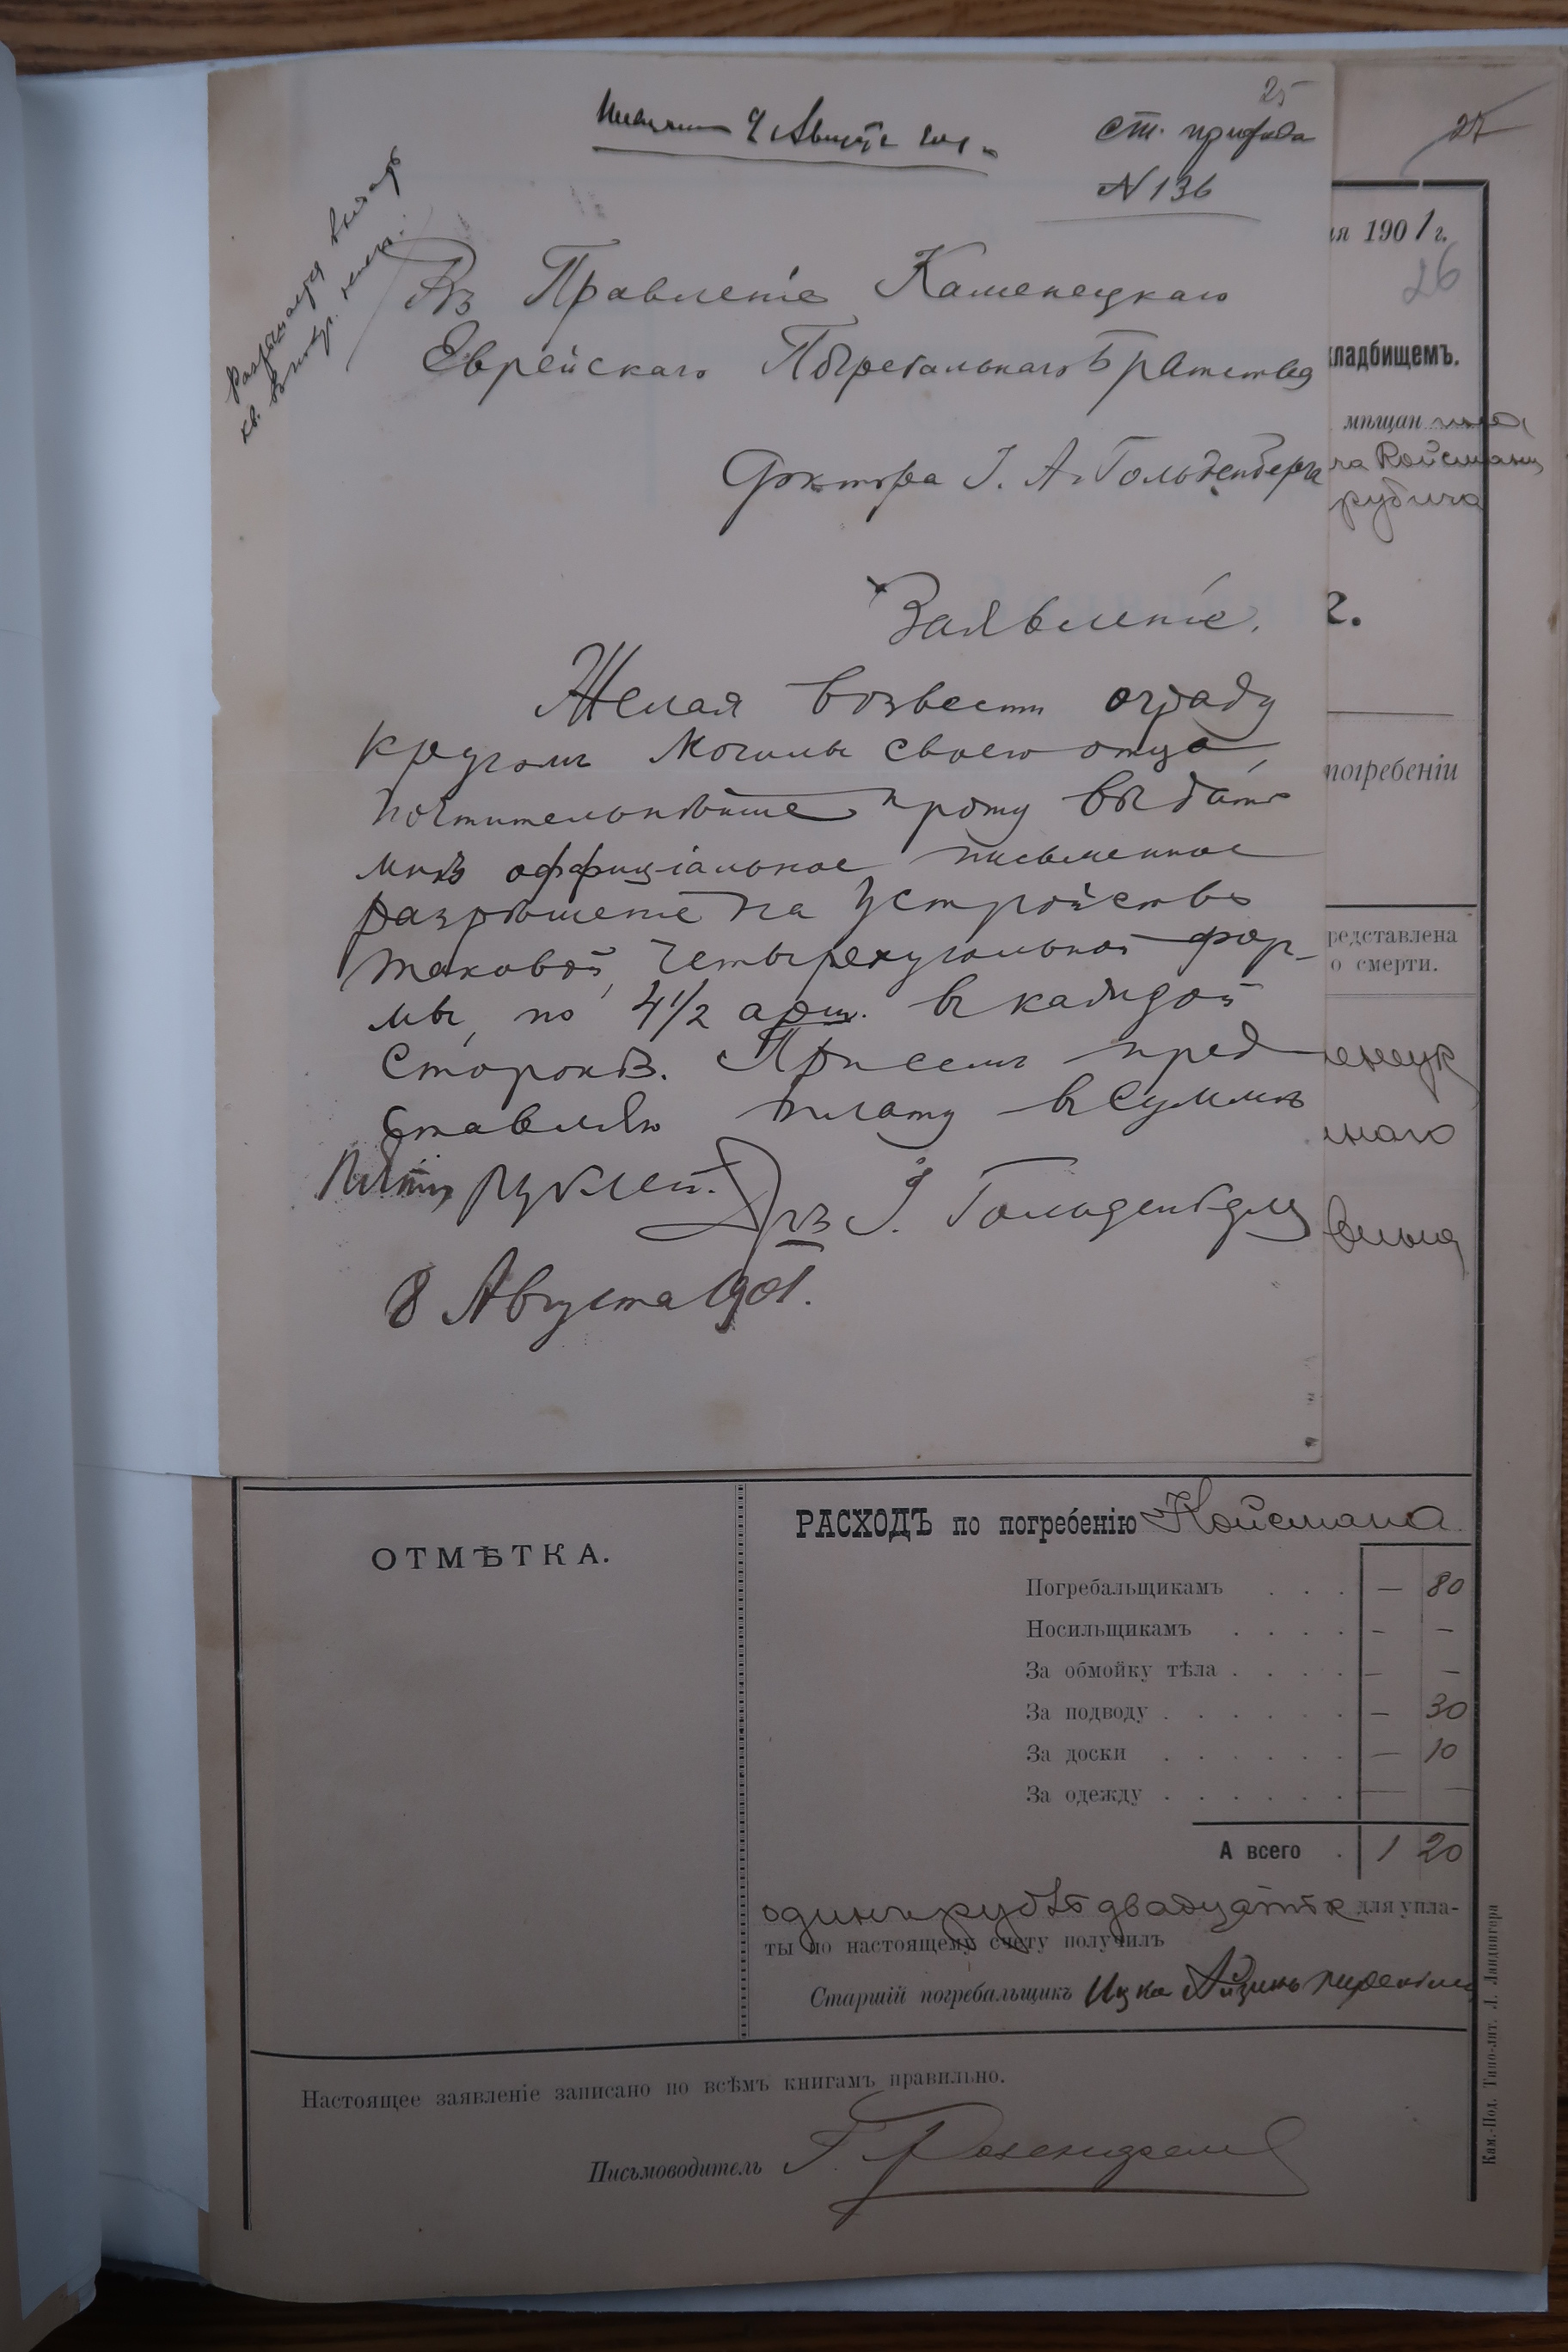 25
9 Августа 1901 г.
ст. прихода
N 136
27
Въ Правленіе Каменецкаго
Еврейскаго Погребальнаго Братства
Доктора І. А. Гольденберга
Заявленіе.
Желая возвести ограду
кругомъ могилы своего отца,
почтительнѣйше прошу выдать
мнѣ оффиціальное письменное
разрѣшеніе на устройство
таковой, четыреугольной фор-
мы, по 4 1/2 арш. въ каждой
сторонѣ. При семъ пред
ставляю плату въ суммѣ
пяти рублей.
Д-ръ І. Гольденберг
8 Августа 1901.
ия 1901 г.
26
кладбищемъ.
мѣщан
ча Койсмана
рубича
г.
погребеніи
редставлена
о смерти.
енецк
наго
ОТМѢТКА.
РАСХОДЪ по погребенію Койсмана
Погребальщикамъ . . . — 80
Носильщикамъ . . . . – –
За обмойку тѣла . . . . – –
За подводу . . . . . . – 30
За доски . . . . . . — 10
За одежду . . . . . . — —
А всего . 1 20
одинъ рубль двадцать к для упла-
ты по настоящему счету получилъ
Старшій погребальщикъ Ицко
Настоящее заявленіе записано по всѣмъ книгамъ правильно.
Письмоводитель
Кам.-Под. Типо-лит. Л. Ландвигера